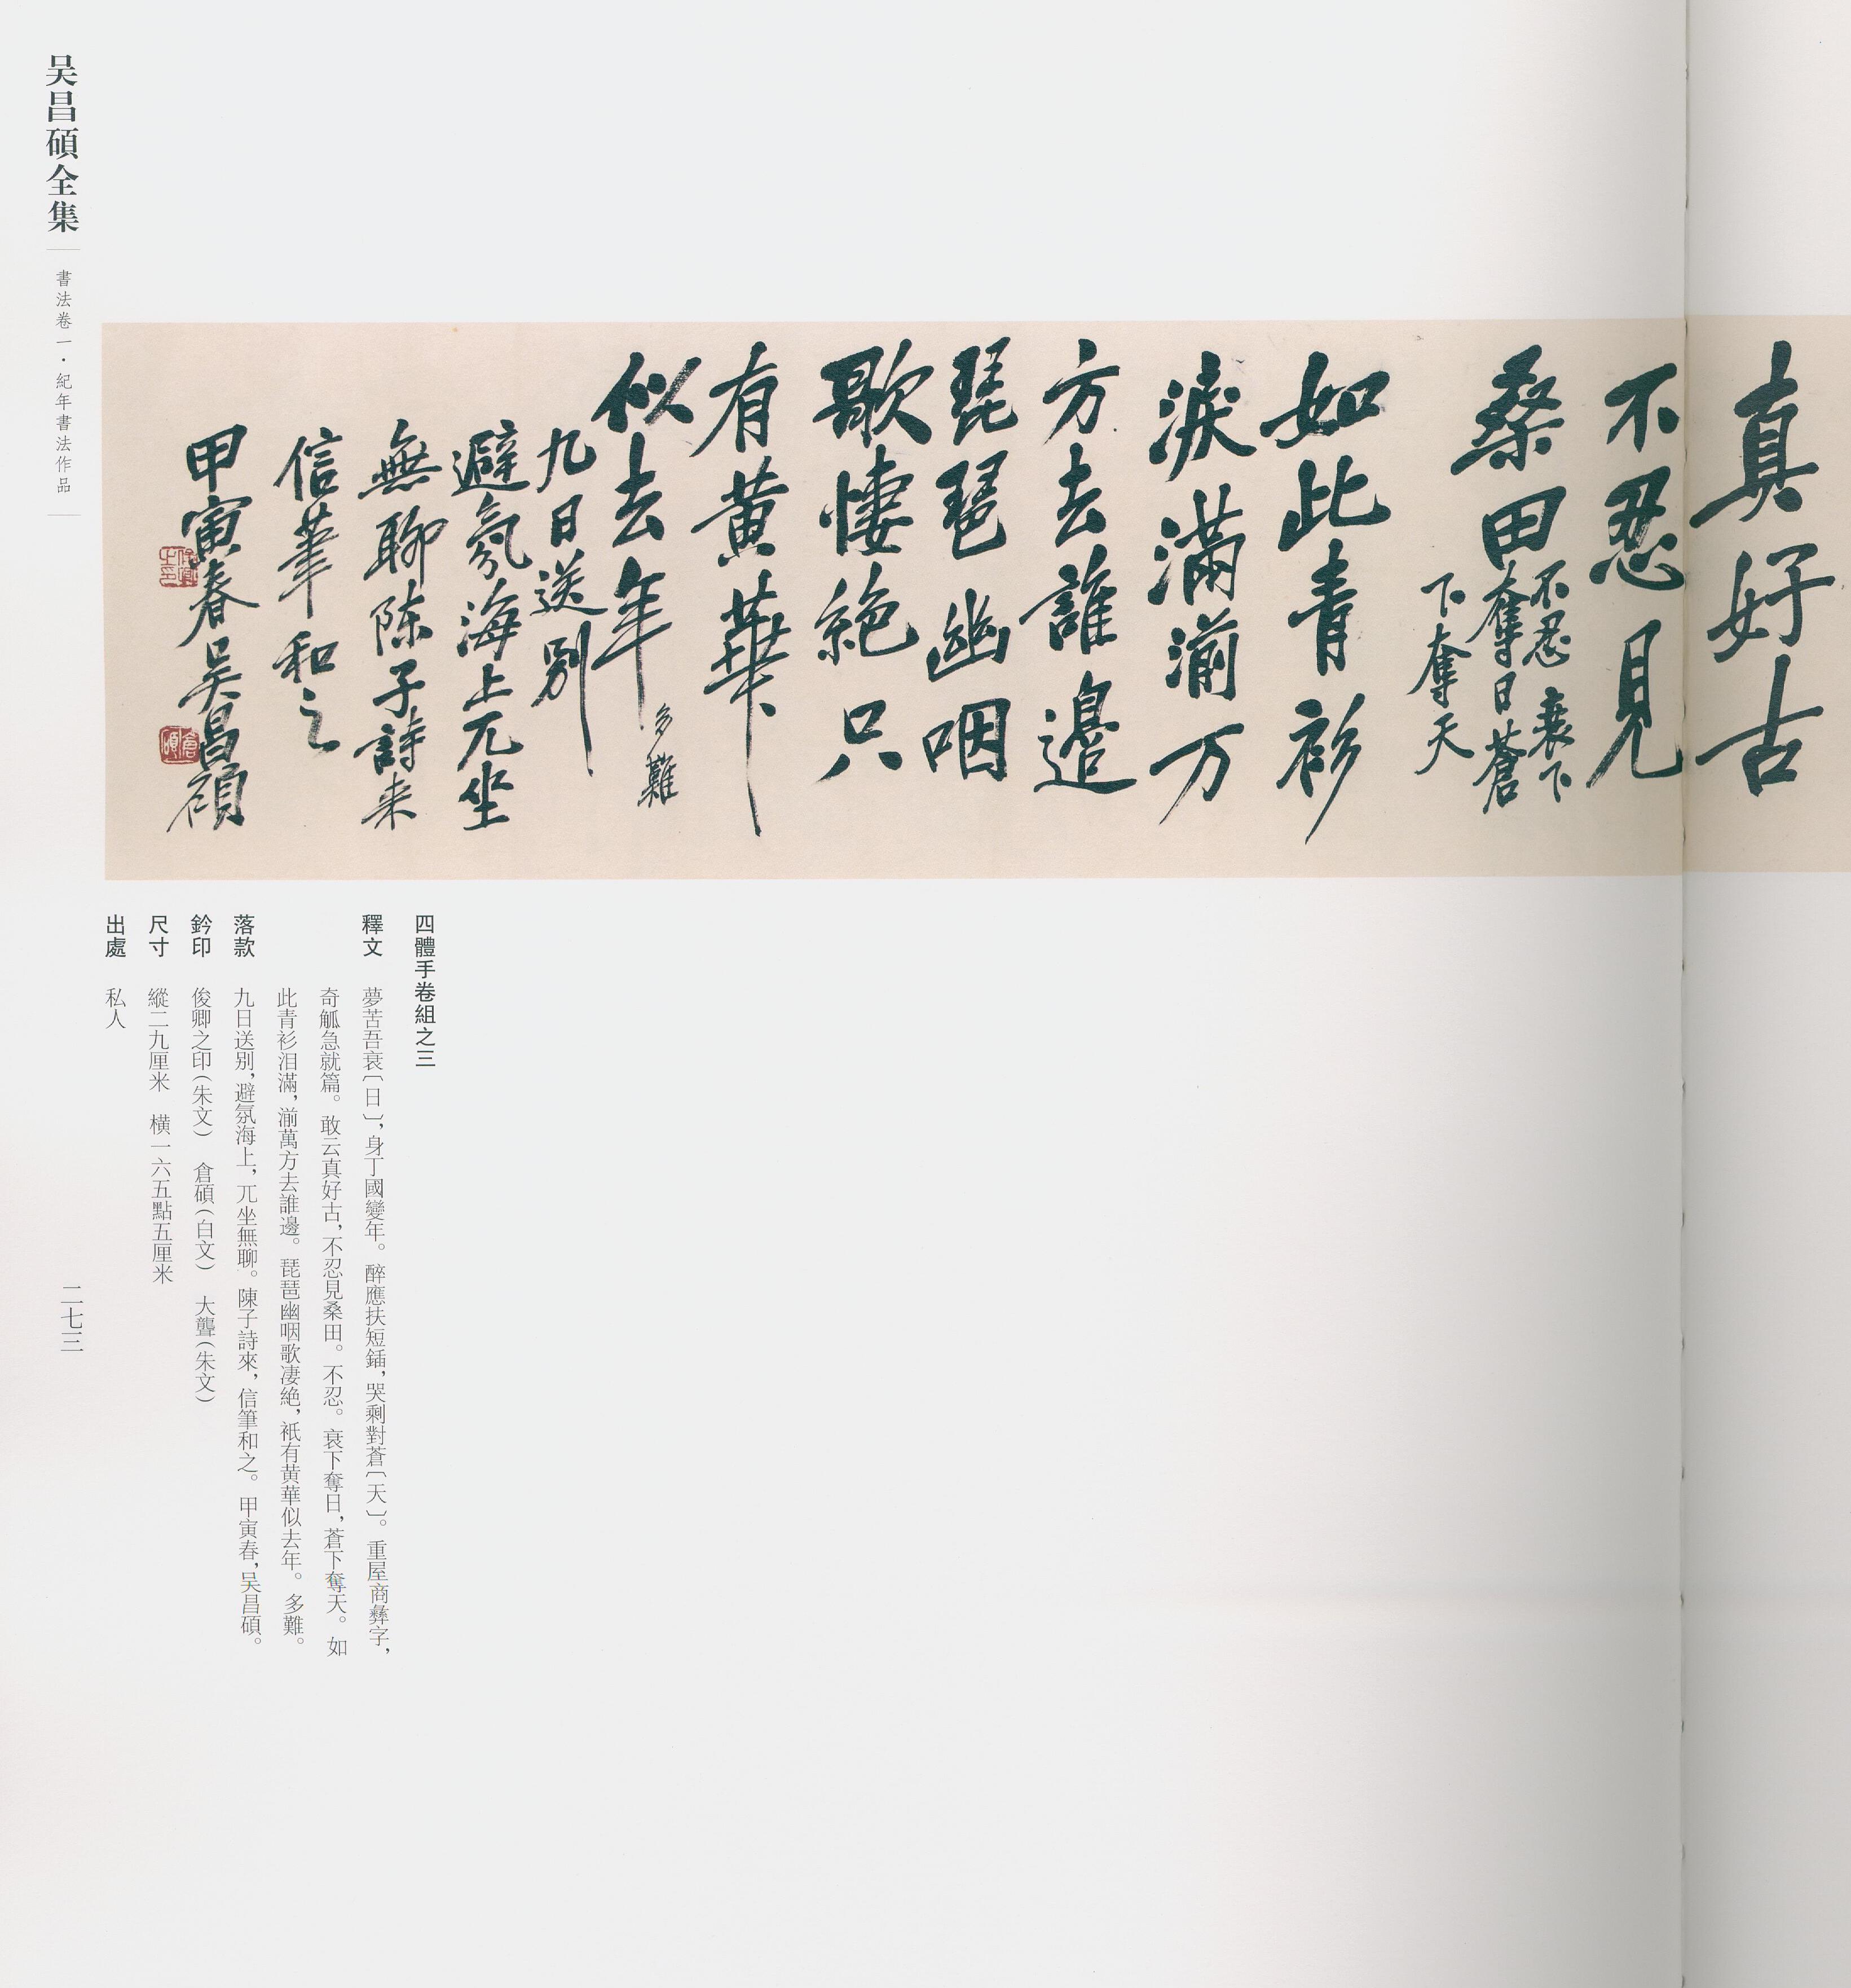 真好古
不忍見
桑田
不忍 衰下
奪日蒼
下奪天
如此青衫
淚滿湔万
方去誰邊
琵琶幽咽
歌悽絶只
有黃華
似去年
多難
九日送別
避氛海上兀坐
無聊陳子詩来
信筆和之
甲寅春吴昌碩
俊卿之印
倉碩
四體手卷組之三
釋文 夢苦吾衰〔日〕，身丁國變年。醉應扶短鍤，哭剩對蒼〔天〕。重屋商彝字，
奇觚急就篇。敢云真好古，不忍見桑田。不忍。衰下奪日，蒼下奪天。如
此青衫泪滿，湔萬方去誰邊。琵琶幽咽歌凄絶，衹有黄華似去年。多難。
落款 九日送别，避氛海上，兀坐無聊。陳子詩來，信筆和之。甲寅春，吴昌碩。
鈐印 俊卿之印（朱文） 倉碩（白文） 大聾（朱文）
尺寸 縱二九厘米 橫一六五點五厘米
出處 私人
吴昌碩全集
書法卷一·紀年書法作品
二七三